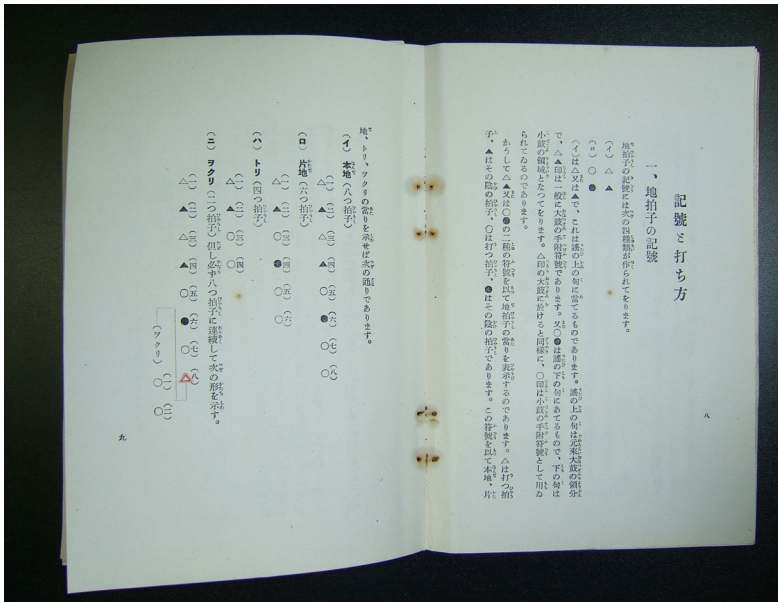 記號と打ち方
一、地拍子の記號
地拍子の記號には次の四種類が作られてをります。
(イ) △ ▲
(ロ) ○ ●
(イ)は△又は▲で、これは謠の上の句に當てるものであります。謠の上の句は元來大鼓の領分
で、△▲印は一般に大鼓の手附符號であります。又○●は謠の下の句にあてるもので、下の句は
小鼓の領域となつてをります。△印の大鼓に於けると同樣に、○印は小鼓の手附符號として用ゐ
られてゐるのであります。
かうして△▲又は○●の二種の符號を以て地拍子の當りを表示するのであります。△は打つ拍
子、▲はその陰の拍子、○は打つ拍子、●はその陰の拍子であります。この符號を以て本地、片
八
地、トリ、ヲクリの當りを示せば次の通りであります。
(イ) 本地(八つ拍子)
(一)(二)(三)(四)(五)(六)(七)(八)
△ ▲ △ ▲ ○ ● ○ ○
(ロ) 片地(六つ拍子)
(一)(二)(三)(四)(五)(六)
△ ▲ ○ ● ○ ○
(ハ) トリ(四つ拍子)
(一)(二)(三)(四)
△ ▲ ○ ○
(ニ) ヲクリ(二つ拍子)但し必ず八つ拍子に連續して次の形を示す。
(一)(二)(三)(四)(五)(六)(七)(八)
△ ▲ △ ▲ ○ ● ○ △
(一)(二)
(ヲクリ) ○ ○
九